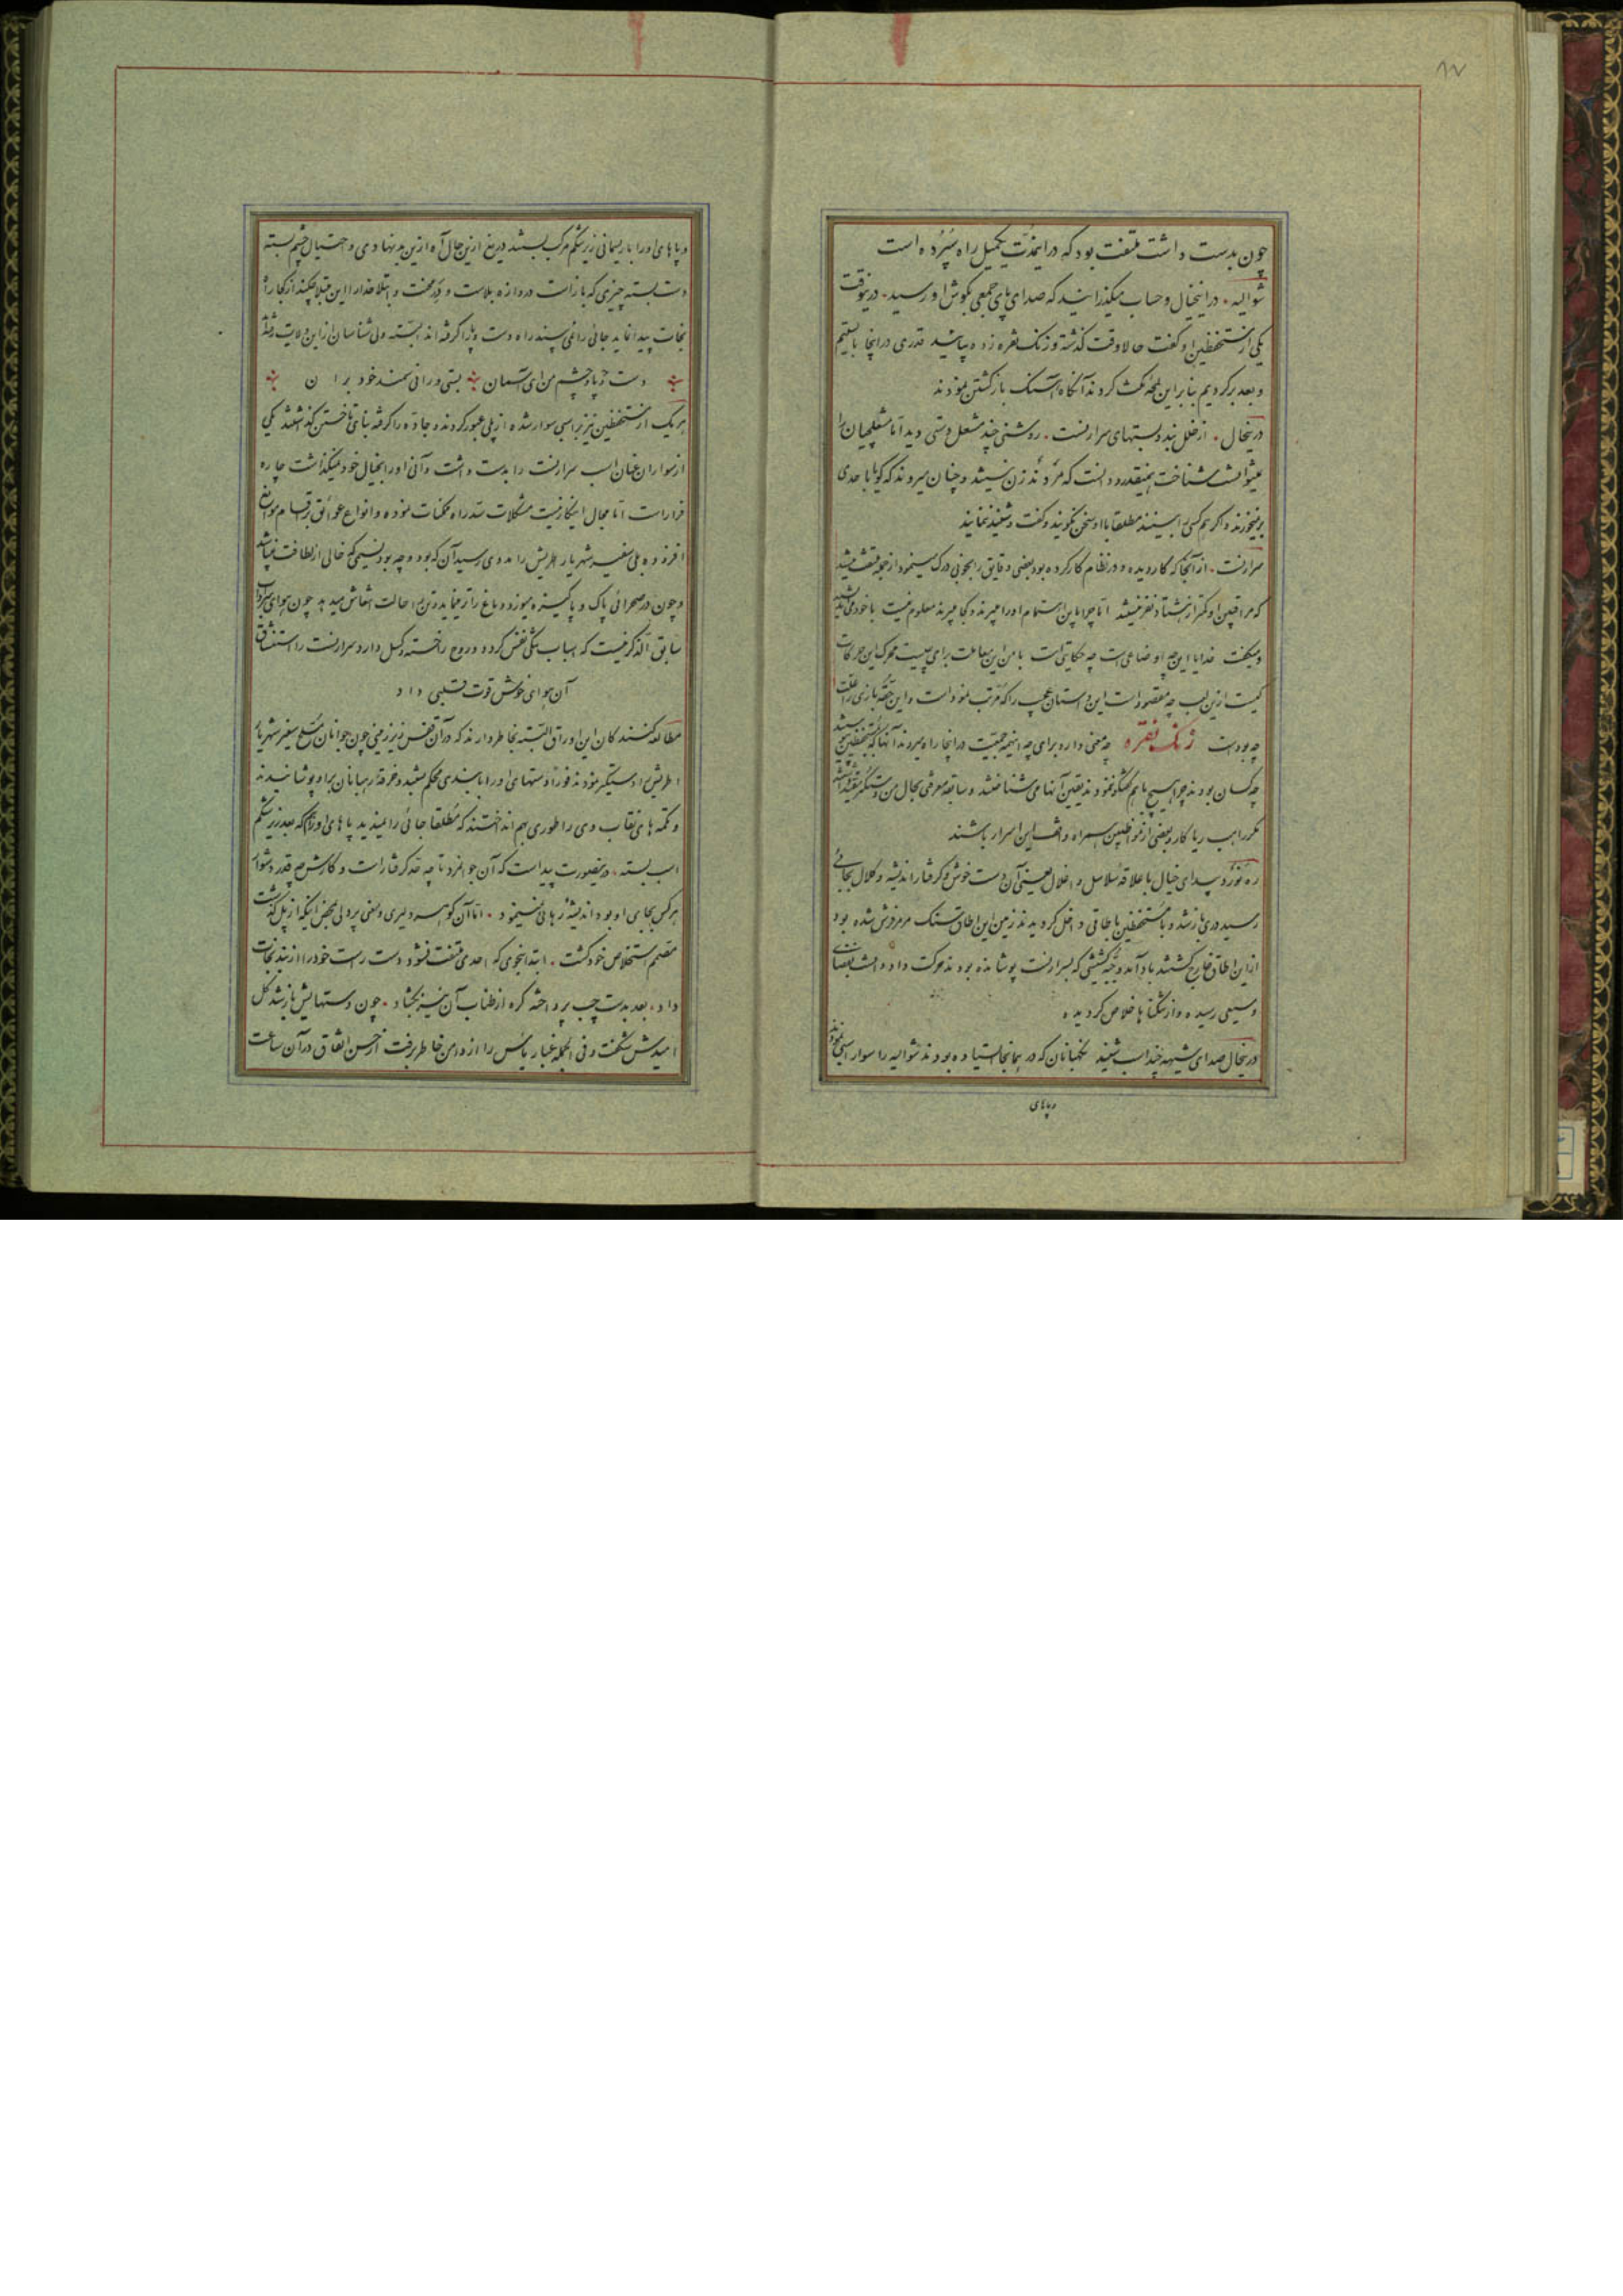 ۱۷
چون بدست داشت ملتفت بود که در اینمدت یکمیل راه سپرده است
شوالیه . در اینخیال و حساب میگذرانید که صدای پای جمعی بگوش او رسید . در ینوقت
یکی از مستحفظین او گفت حالا وقت گذشته و زنک نقره زده و بپاشید قدری در اینجا بایستیم
و بعد برگردیم بنابراین لمحهٔ مکث کردند آنگاه آهنک بازگشتن نمودند
درینحال . از خلل بند و بستهای سرارنست . روشنی چند مشعل دستی دید اما مشعلچیان را
نمیتوانست شناخت همینقدر دانست که مردند زن نیستند و چنان میروند که گویا باحدی
برنمیخورند و اگر هم کسی را ببینند مطلقا با او سخن نگویند و گفت و شنید ننمایند
سرارنست . از آنجا که کار دیده و در نظام کار کرده بود بعضی دقایق را بخوبی درک مینمود از جمله ملتفت میشد
که مراقبین او کمتر از هشتاد نفر نمیشد اما چرا باین اهتمام او را میبرند و کجا میبرند معلوم نیست با خود می‌اندیشید
و میگفت خدایا این چه اوضاعی است چه حکایتی است با من این معاملت برای چیست محرک این حرکات
کیست ازین لعب چه مقصود است این دستان عجب را که مرتب نموده است و این حقه بازی را علت
چه بوده است زنک نقره چه معنی دارد برای چه اینهمه جمعیت در اینجا راه میروند آنها که مستحفظین
چه کسان بودند چرا هیچ با هم گفتگو ننمودند یقین آنها می‌شناختند و سابقه معرفی بحال من داشتند
مکر راهب ریا کار و بعضی از موظفین همراه واقف این اسرار باشند
ره نورد بیدای خیال با علاقه سلاسل و اغلال یعنی آن دست خوش و گرفتار اندیشه و کلال بجائی
رسید دری باز شد و با مستحفظین باطاقی داخل گردیدند زمین این اطاق سنک مرمر فرش شده بود
از این اطاق خارج گشتند باد آمد و جبه کشیشی که بسرارنست پوشانده بودند حرکت داد دانست بفضای
وسیعی رسیده و از تنگناها خلاص گردیده
درینحال صدای شیهه چند اسب شنید نگهبانان که در همانجا ایستاده بودند شوالیه را سوار اسبی نمودند
و پاهای
و پاهای او را با ریسمانی زیر شکم مرکب بستند دریغ ازین حال آه ازین بد نهادی و احتیال چشم بسته
دست بسته چیزی که باز است دروازه بلاست و در محنت و ابتلا خدا را این مبتلا چکند از کجا راه
نجات پیدا نماید جائی را نمی‌بیند راه دست و پا را گرفته‌اند البته ولی شناسان از این ولایت رفته‌اند
دست و پا و چشم من ای آسمان بستی و رانی سمند خود بران
هر یک از مستحفظین نیز بر اسبی سوار شده از پلی عبور کردند و جاده را گرفته بنای تاختن گذاشتند یکی
از سواران عنان اسب سرارنست را بدست داشت و آنی او را بخیال خود نمیگذاشت چاره
فرار است اما مجال اینکار نیست مشکلات سد راه ممکنات نموده و انواع عوائق بر اقسام موانع
افزوده بلی سفیر شهریار اطریش را مددی رسید آن که بود و چه بود نسیمی که خالی از لطافت نمیباشد
و چون در صحرائی پاک و پاکیزه میوزد دماغ را تر مینماید و تن را حالت انتعاش میدهد چون هوای سرداب
سابق الذکر نیست که اسباب تنگی نفس گردد و روح را خسته و کسل دارد سرارنست را استنشاق
آن هوای خوش قوت قلبی داد
مطالعه کنندگان این اوراق البته بخاطر دارند که در آن قفس زیرزمینی چون جوانان مسلح سفیر شهریار
اطریش را دستگیر نمودند فوراً دستهای او را با بندی محکم بستند و خرقهٔ رهبانان بر او پوشانیدند
و تکمه‌های نقاب وی را طوری بهم انداختند که مطلقا جائی را نمیدید پاهای او را هم که بعد زیر شکم
اسب بسته . درینصورت پیداست که آن جوانمرد تا چه حد گرفتار است و کارش چه قدر دشوار
هر کس بجای او بود اندیشهٔ رهائی نمینمود . اما آن گوهر دلیری و یعنی پر دلی بمحض اینکه از پل گذشت
مصمم استخلاص خود گشت . ابتدا بنحوی که احدی ملتفت نشود دست راست خود را از بند نجات
داد . بعد بدست چپ پرداخته گره از طناب آن نیز بگشاد . چون دستهایش باز شد گل
امیدش شکفت و فی الجمله غبار یأس را از دامن خاطر برفت از حسن اتفاق در آن ساعت